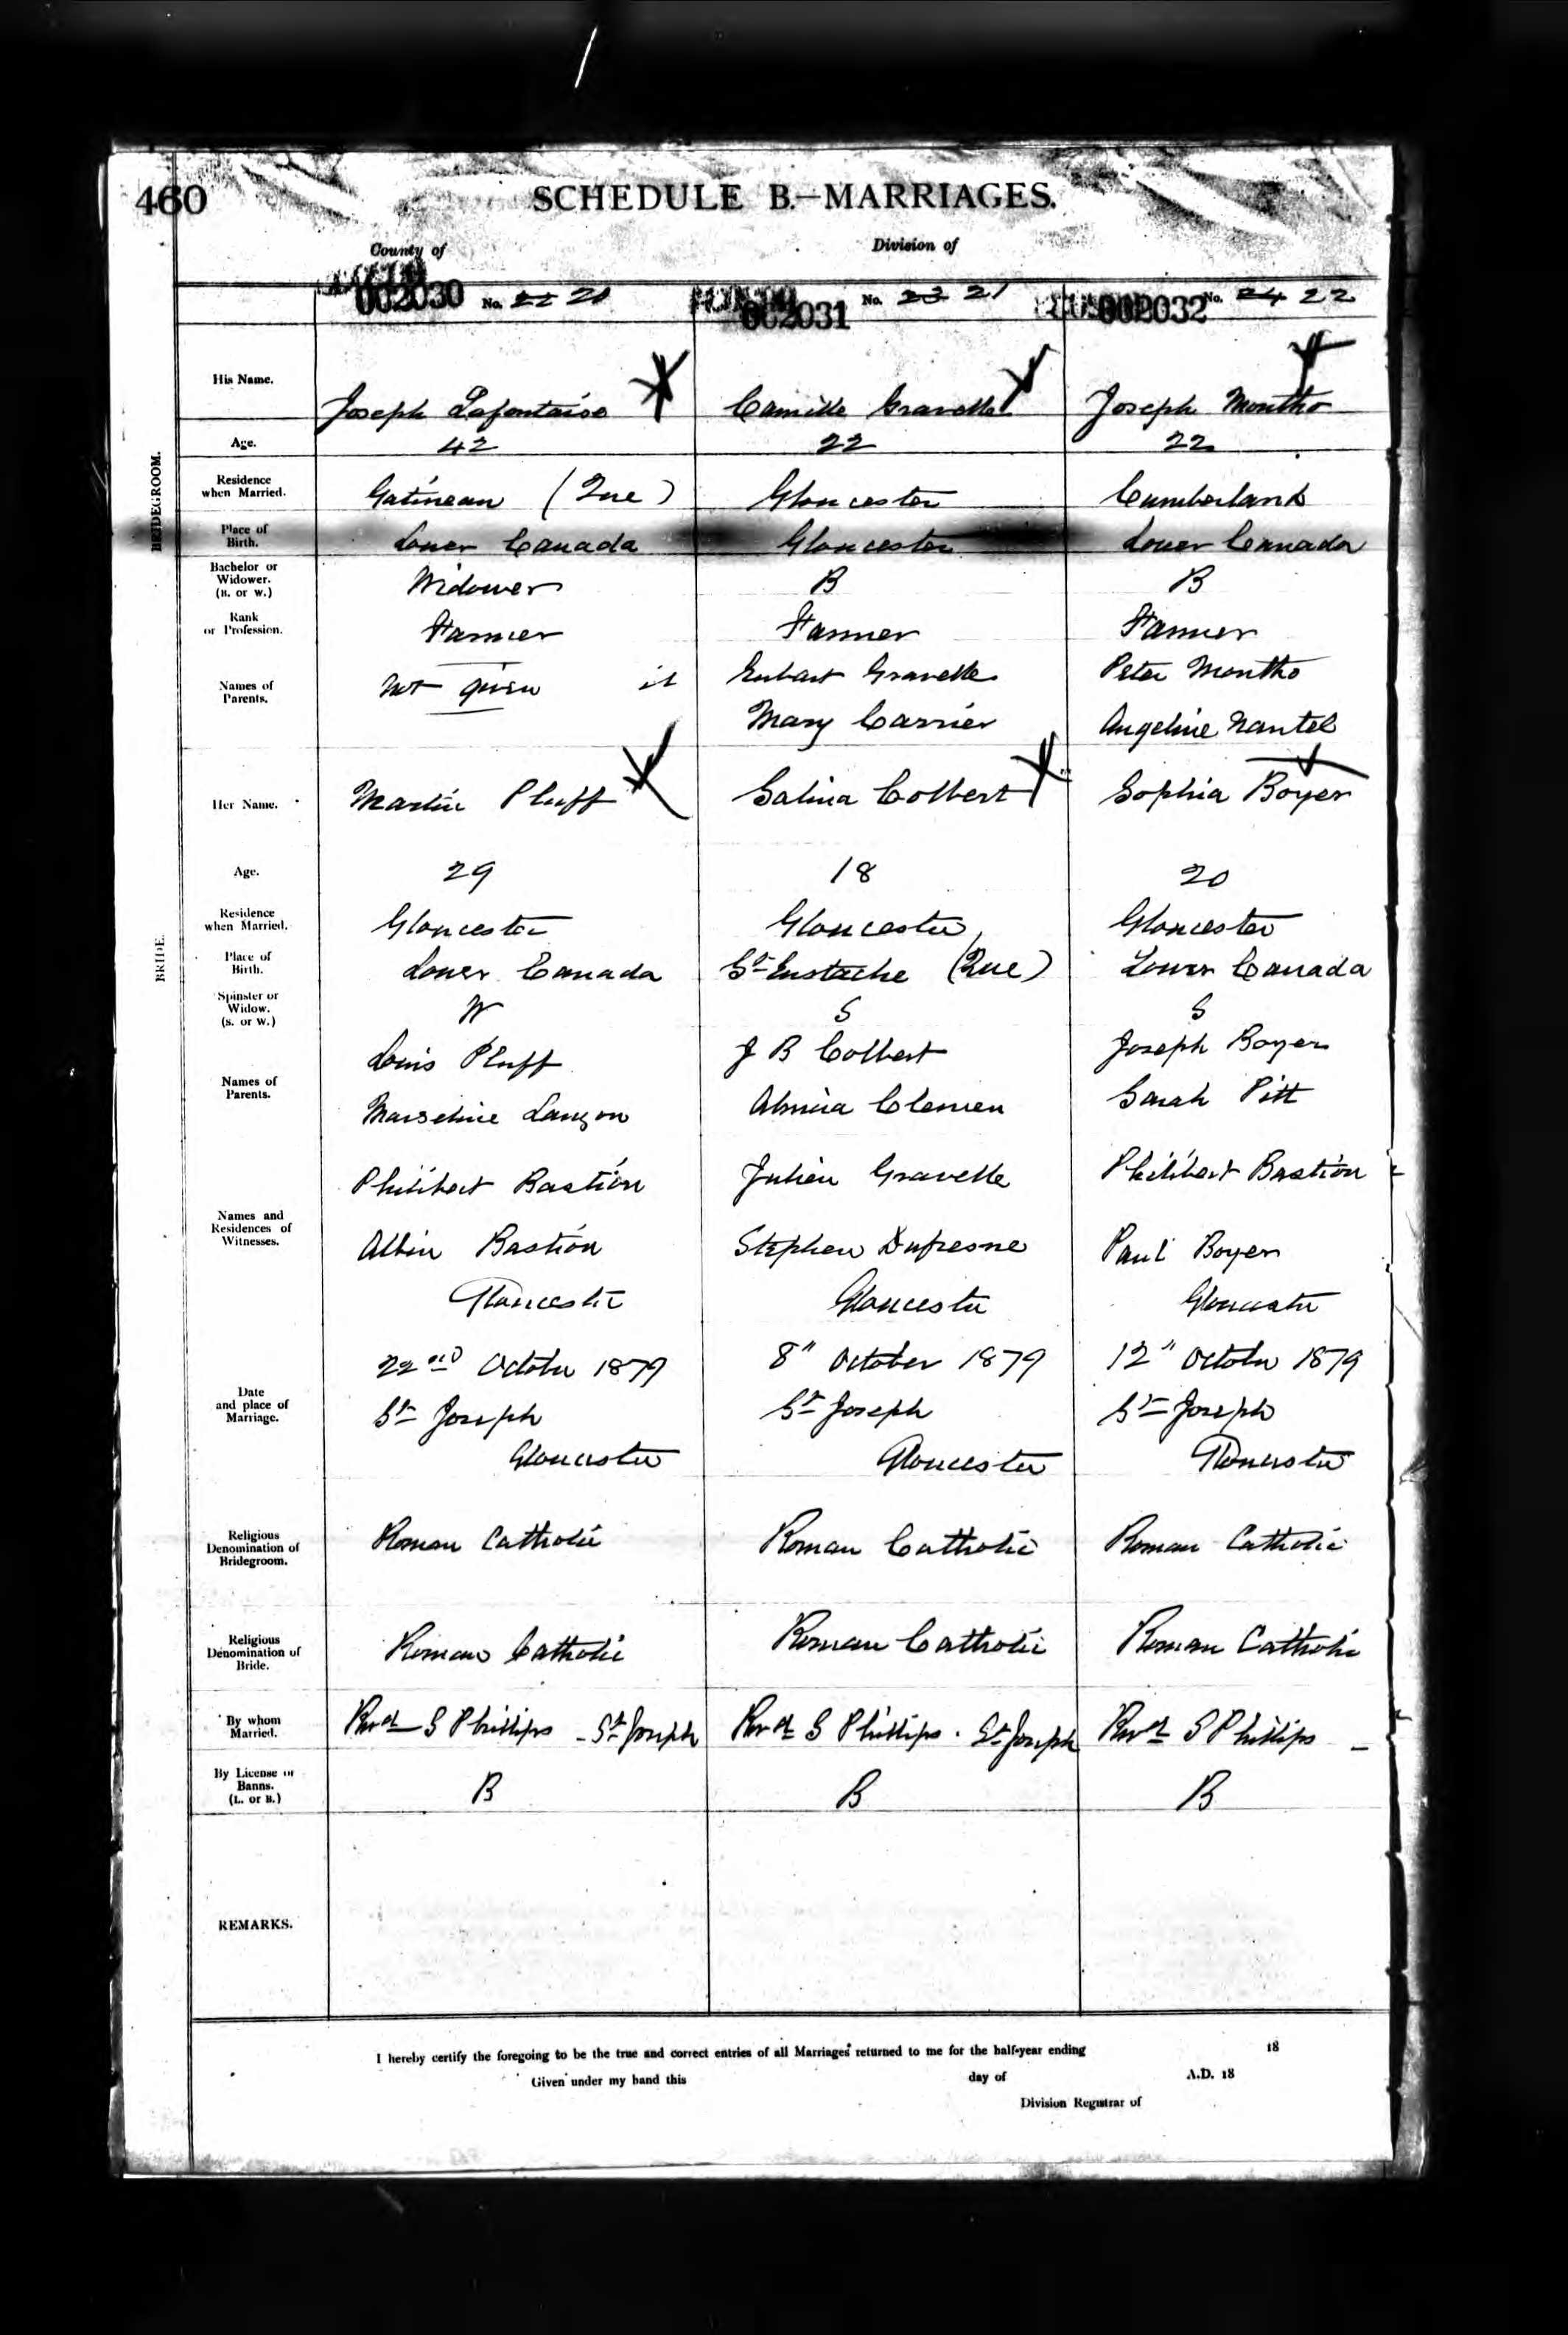 460
SCHEDULE B.—MARRIAGES.
County of
Division of
002030 No. 22 20
002031 No. 23 21
002032 No. 24 22
BRIDEGROOM.
His Name.
Joseph Lafontaine
Camille Gravelle
Joseph Montho
Age.
42
22
22
Residence
when Married.
Gatineau (Que)
Gloucester
Cumberland
Place of
Birth.
Lower Canada
Gloucester
Lower Canada
Bachelor or
Widower.
(B. or W.)
Widower
B
B
Rank
or Profession.
Farmer
Farmer
Farmer
Names of
Parents.
Not given
Gravelle
Mary Carrier
Peter Montho
Angeline Nantel
BRIDE.
Her Name.
Martin Pluff
Salina Colbert
Sophia Boyer
Age.
29
18
20
Residence
when Married.
Gloucester
Gloucester
Gloucester
Place of
Birth.
Lower Canada
St Eustache (Que)
Lower Canada
Spinster or
Widow.
(S. or W.)
W
S
S
Names of
Parents.
Louis Pluff
Marseline Lanzon
J B Colbert
Clemen
Joseph Boyer
Sarah Pitt
Names and
Residences of
Witnesses.
Philibert Bastion
Albin Bastion
Gloucester
Julien Gravelle
Stephen Dufresne
Gloucester
Philibert Bastion
Paul Boyer
Gloucester
Date
and place of
Marriage.
22nd October 1879
St Joseph
Gloucester
8" October 1879
St Joseph
Gloucester
12" October 1879
St Joseph
Gloucester
Religious
Denomination of
Bridegroom.
Roman Catholic
Roman Catholic
Roman Catholic
Religious
Denomination of
Bride.
Roman Catholic
Roman Catholic
Roman Catholic
By whom
Married.
Revd S Phillips - St Joseph
Revd S Phillips. St Joseph
Revd S Phillips -
By License or
Banns.
(L. or B.)
B
B
B
REMARKS.
I hereby certify the foregoing to be the true and correct entries of all Marriages returned to me for the half-year ending 18
Given under my hand this day of A.D. 18
Division Registrar of